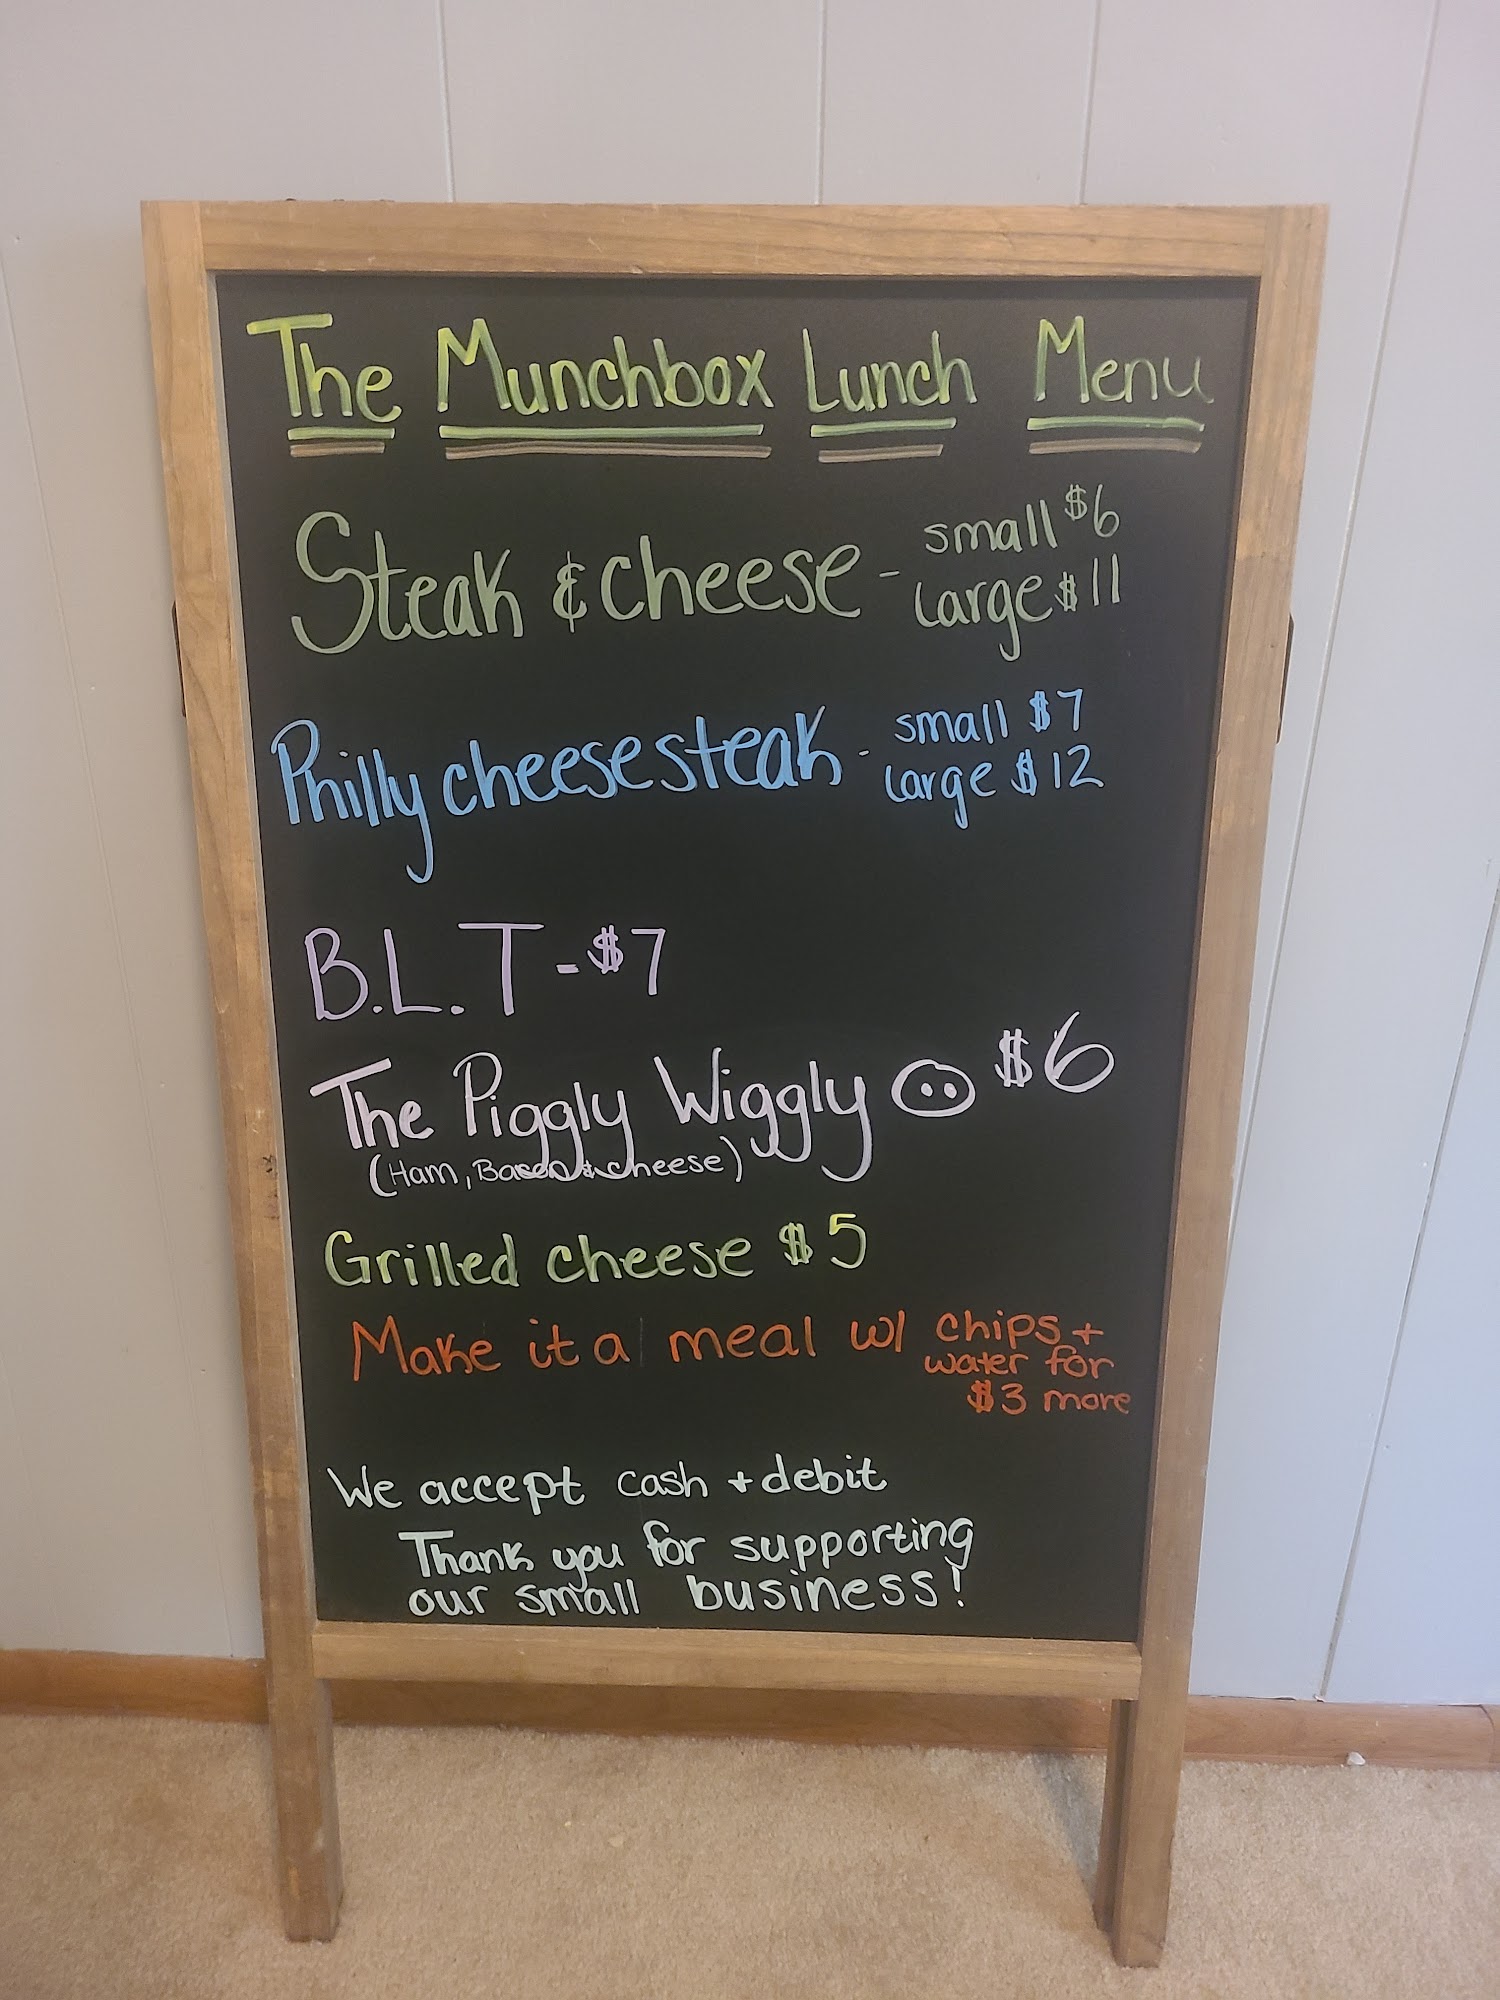 The Munchbox Lunch Menu
Steak & cheese - small $6
large $11
Philly cheesesteak - small $7
large $12
B.L.T - $7
The Piggly Wiggly $6
(Ham, Bacon & cheese)
Grilled cheese $5
Make it a meal w/ chips +
water for
$3 more
We accept cash + debit
Thank you for supporting
our small business!